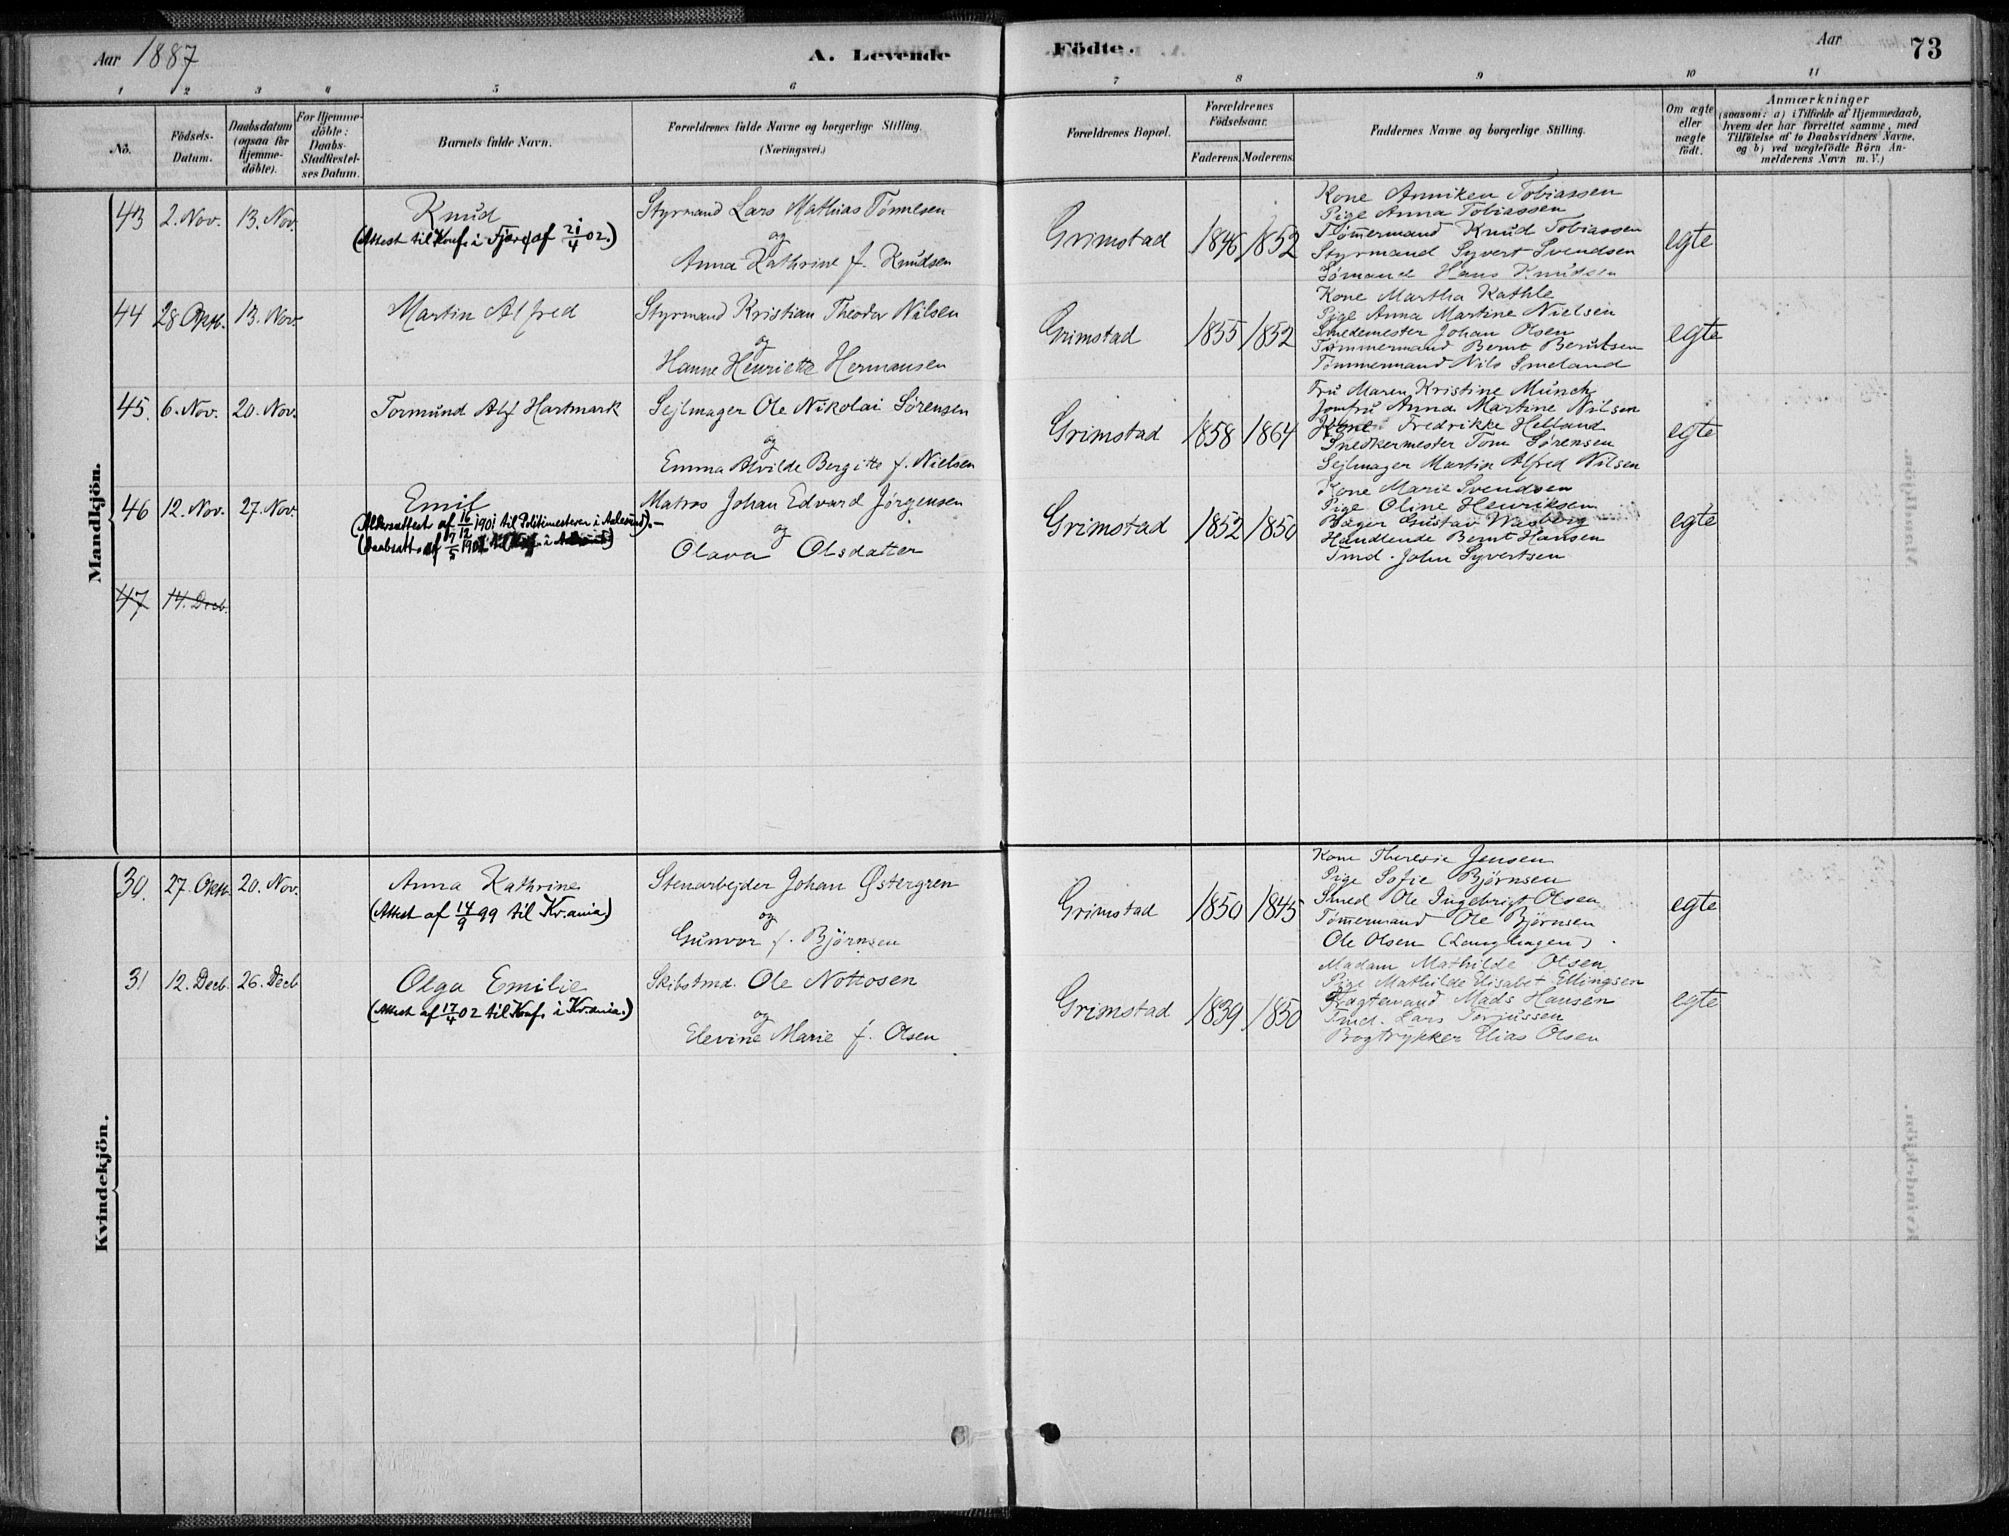 Aar 1887
A. Levende Födte.
Aar
73
1 2 3 4 5 6 7 8 9 10 11
No.
Födsels-Datum.
Daabsdatum (ogsaa för Hjemme-döbte).
For Hjemme-döbte: Daabs-Stadfæstel-ses Datum.
Barnets fulde Navn.
Forældrenes fulde Navne og borgerlige Stilling. (Næringsvei.)
Forældrenes Bopæl.
Forældrenes Födselsaar.
Faderens. Moderens.
Faddernes Navne og borgerlige Stilling.
Om ægte eller uægte födt.
Anmærkninger
(saasom: a) i Tilfælde af Hjemmedaab,
hvem der har forrettet samme, med
Tilföielse af to Daabsvidners Navne.
og b) ved uægtefödte Börn An-
melderens Navn m. V.)
Mandkjön.
43 2. Nov. 13. Nov.
Knud
(Attest til Konf. i Fjære af 21/4 02.)
Styrmand Lars Mathias Tönnesen
og
Anna Kathrine f. Knudsen
Grimstad 1846 1852
Kone Anniken Tobiassen
Pige Anna Tobiassen
Tömmermand Knud Tobiassen
Styrmand Syvert Svendsen
Sömand Hans Knudsen
egte
44 28 Oktb. 13. Nov.
Martin Alfred
Styrmand Kristian Theodor Nilsen
og
Hanne Henriette Hermansen
Grimstad 1855 1852
Kone Martha Kathle
Pige Anna Martine Nielsen
Smedemester Johan Olsen
Tömmermand Bernt Berntsen
Tömmermand Nils Smeland
egte
45. 6. Nov. 20. Nov.
Tormund Alf Hartmark
Sejlmager Ole Nikolai Sörensen
og
Emma Alvilde Bergitte f. Nielsen
Grimstad 1858 1864
Fru Maren Kristine Münch
Jomfru Anna Martine Nilsen
Fredrikke Helland
Snedkermester Tom Sörensen
Sejlmager Martin Alfred Nilsen
egte
46 12. Nov. 27. Nov.
Emil
(Aldersattest af 16/12 1901 til Politimesteren i Aalesund).-
(Daabsatt. af 7/5 1902 til Konf. i
Matros Johan Edvard Jörgensen
og
Olava Olsdatter
Grimstad 1852 1850
Kone Marie Svendsen
Pige Oline Henriksen
Bager Gustav Wasberg
Handlende Bernt Hansen
Tmd. John Syvertsen
egte
47 14. Decb.
Kvindekjön.
30. 27. Oktb. 20. Nov.
Anna Kathrine
(Attest af 14/9 99 til Kr.ania)
Stenarbejder Johan Östergren
og
Gunvor f. Björnsen
Grimstad 1850 1845
Kone Theresie Jensen
Pige Sofie Björnsen
Smed Ole Ingebrigt Olsen
Tömmermand Ole Björnsen
Ole Olsen (Langhagen).
egte
31 12. Decb. 26. Decb
Olga Emilie
(Attest af 17/4 02 til Konf. i Kr.ania.)
Skibstmd. Ole Nottosen
og
Elevine Marie f. Olsen
Grimstad 1839 1850
Madam Mathilde Olsen
Pige Mathilde Elisabet Ellingsen
Fragtemand Mads Hansen
Tmd. Lars Torjussen
Bogtrykker Elias Olsen
egte